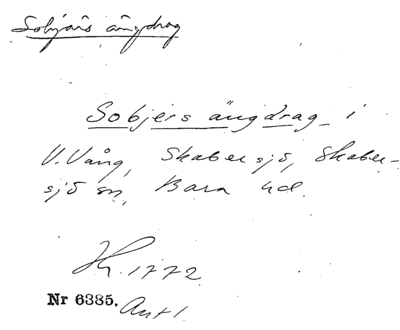 Sobjers ängdrag
Sobjers ängdrag i
V. Vång, Skabersjö, Skaber-
sjö sn, Bara hd.
Hr. 1772
Nr 6385. Avt 1